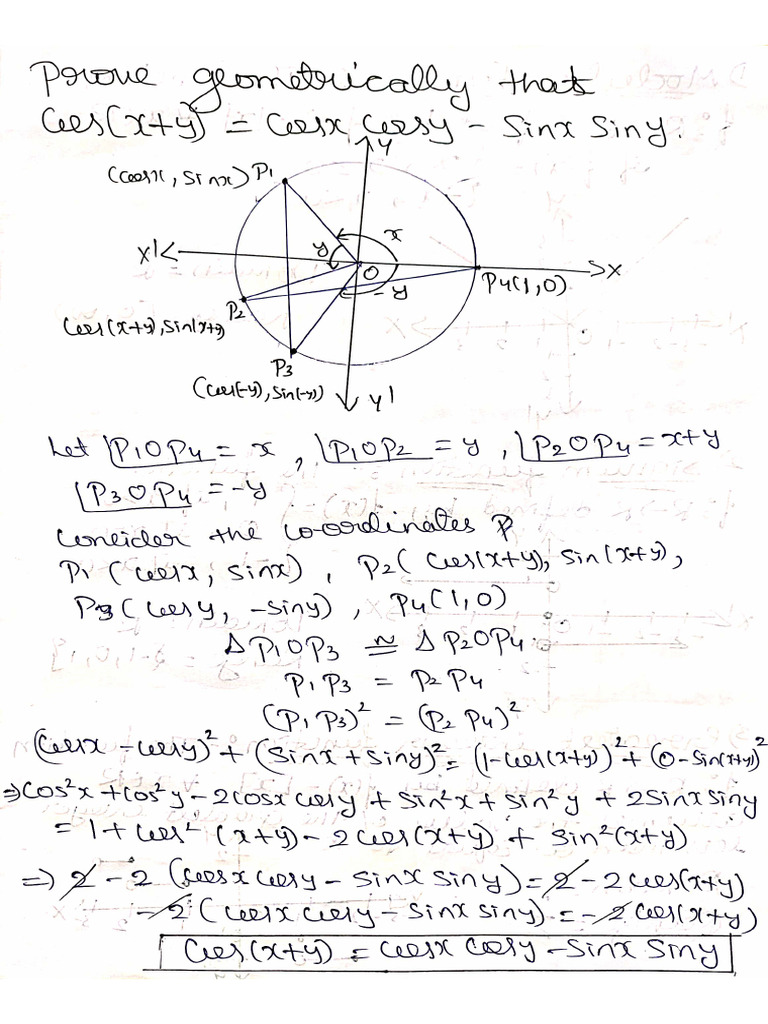 Prove geometrically that
Cos(x+y) = Cosx Cosy - Sinx Siny.
Y
(cosx, Sinx) P1
x
y
X'
O
X
P4(1,0)
-y
P2
Cos(x+y), Sin(x+y)
P3
(Cos(-y), Sin(-y))
Y'
Let ∠P1OP4 = x, ∠P1OP2 = y, ∠P2OP4 = x+y
∠P3OP4 = -y
Consider the co-ordinates P
P1 (cosx, sinx), P2( Cos(x+y), Sin(x+y),
P3 (Cosy, -siny), P4(1,0)
Δ P1OP3 ≅ Δ P2OP4.
P1P3 = P2P4
(P1P3)² = (P2P4)²
(Cosx - cosy)² + (Sinx + siny)² = (1-Cos(x+y))² + (0-Sin(x+y))²
⇒ Cos²x + Cos²y - 2cosx cosy + Sin²x + Sin²y + 2Sinx siny
= 1 + Cos² (x+y) - 2Cos(x+y) + Sin²(x+y)
⇒ 2 - 2 (Cosx cosy - Sinx Siny) = 2 - 2Cos(x+y)
-2 (Cosx cosy - Sinx siny) = -2 Cos(x+y)
Cos(x+y) = Cosx Cosy - Sinx Siny